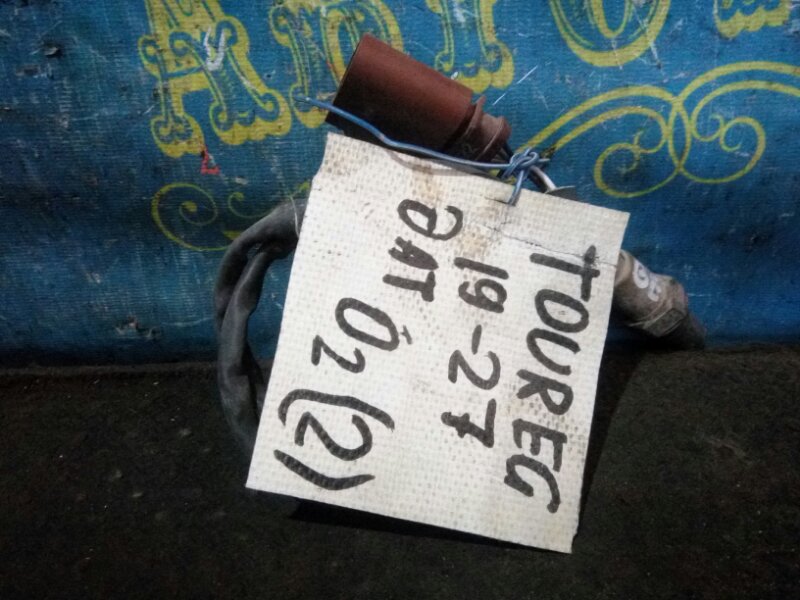 TOUREG
19-27
ДАТ
O2 (2)